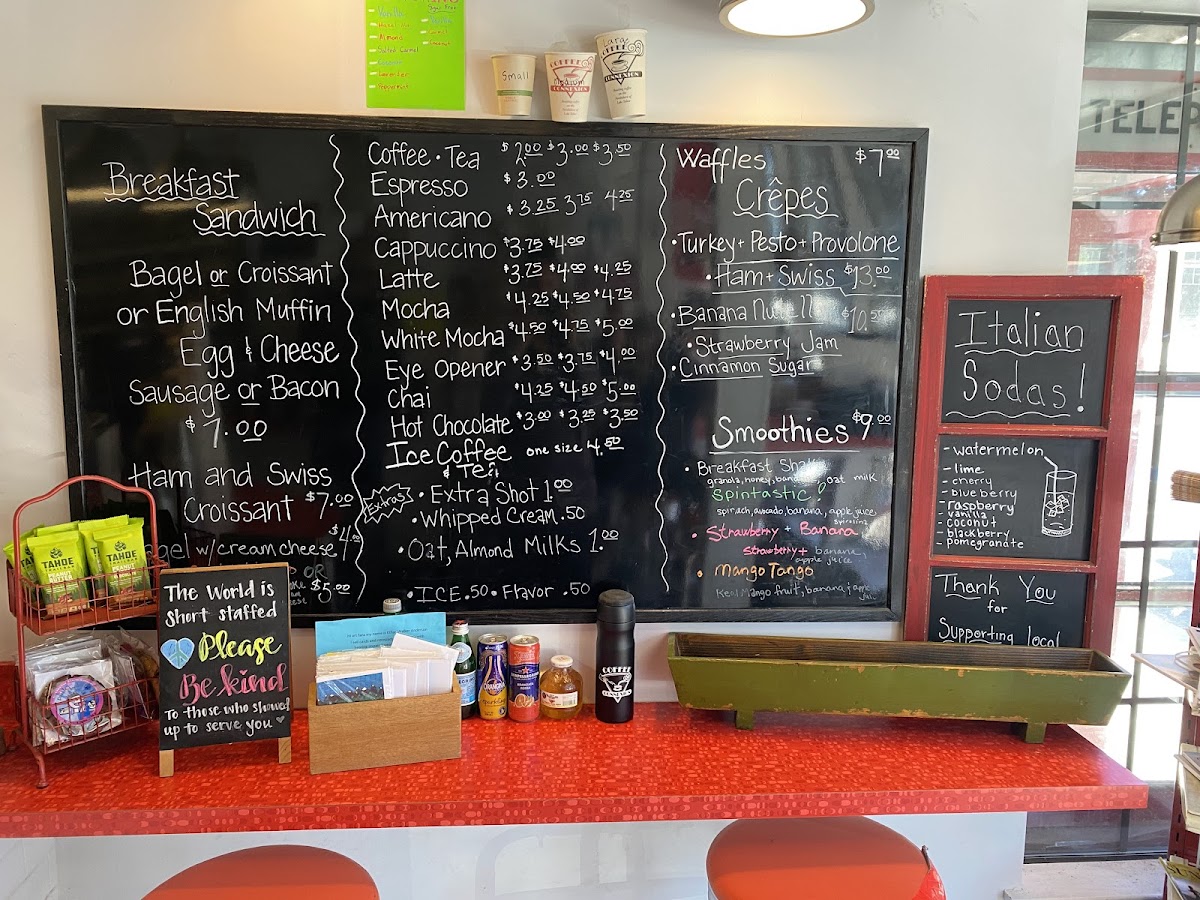 Sugar Free
Vanilla
Almond
Salted Caramel
Peppermint
Small
COFFEE
Medium
CONNEXION
Large
COFFEE
CONNEXION
TELE
Breakfast
Sandwich
Bagel or Croissant
or English Muffin
Egg & Cheese
Sausage or Bacon
$7.00
Ham and Swiss
Croissant $7.00
w/ cream cheese $4.
OR
$5.00
Coffee • Tea $2.00 $3.00 $3.50
Espresso $3.00
Americano $3.25 3.75 4.25
Cappuccino $3.75 $4.00
Latte $3.75 $4.00 $4.25
Mocha $4.25 $4.50 $4.75
White Mocha $4.50 $4.75 $5.00
Eye Opener $3.50 $3.75 $4.00
Chai $4.25 $4.50 $5.00
Hot Chocolate $3.00 $3.25 $3.50
Ice Coffee one size 4.50
& Tea
Extras
• Extra Shot 1.00
• Whipped Cream .50
• Oat, Almond Milks 1.00
• ICE .50 • Flavor .50
Waffles $7.00
Crêpes
• Turkey + Pesto + Provolone
• Ham + Swiss $13.00
• Banana Nutella $10.50
• Strawberry Jam
• Cinnamon Sugar
Smoothies $9.00
• Breakfast
granola, honey, banana, oat milk
Spintastic!
spinach, avocado, banana, apple juice,
spirulina
• Strawberry + Banana
strawberry + banana,
apple juice
• Mango Tango
Kent Mango fruit, banana,
Italian
Sodas!
- watermelon
- lime
- cherry
- blueberry
- raspberry
- vanilla
- coconut
- blackberry
- pomegranate
Thank You
for
Supporting local
TAHOE
PEANUT
TAHOE
PEANUT
The World is
Short staffed
Please
Be kind
To those who showed
up to serve you
COFFEE
CONNEXION